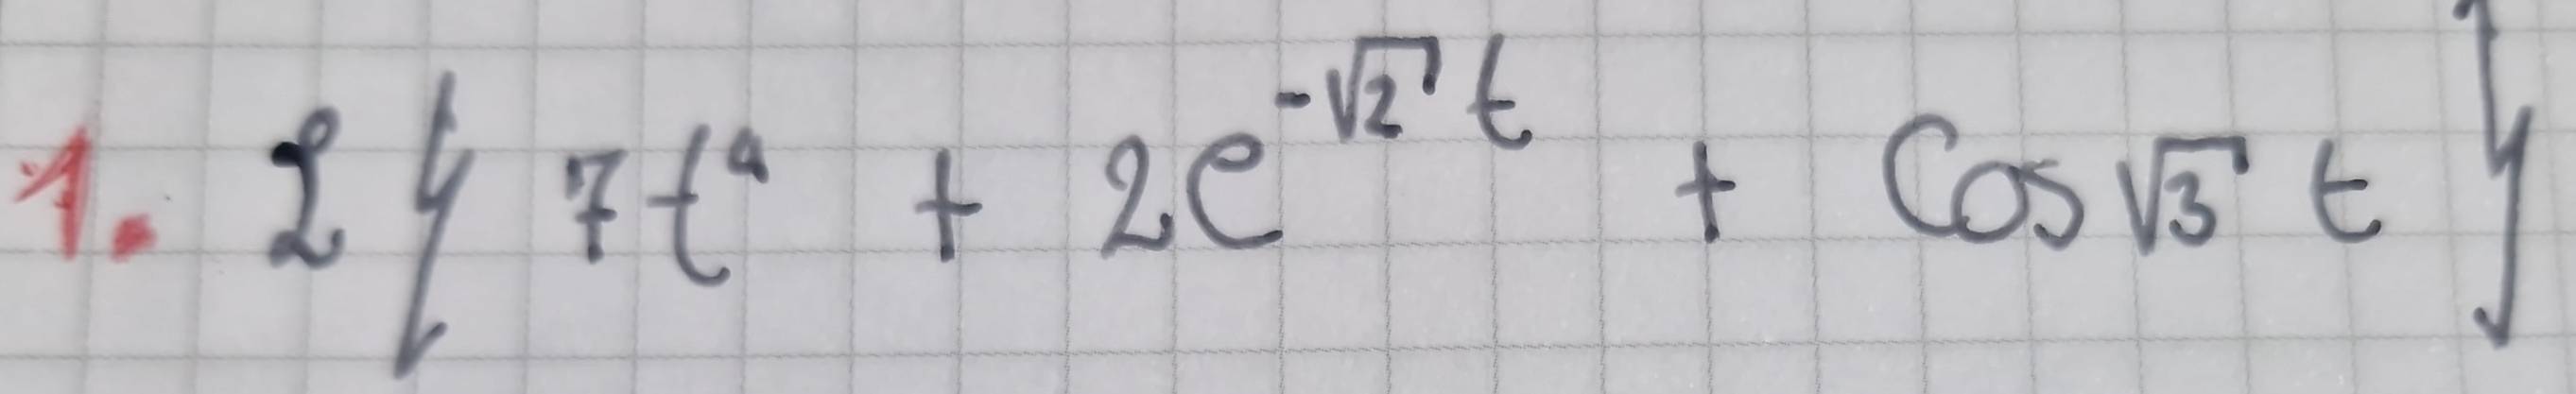 1. ℒ{ 7t⁴ + 2e^{-√2 t} + Cos √3 t }